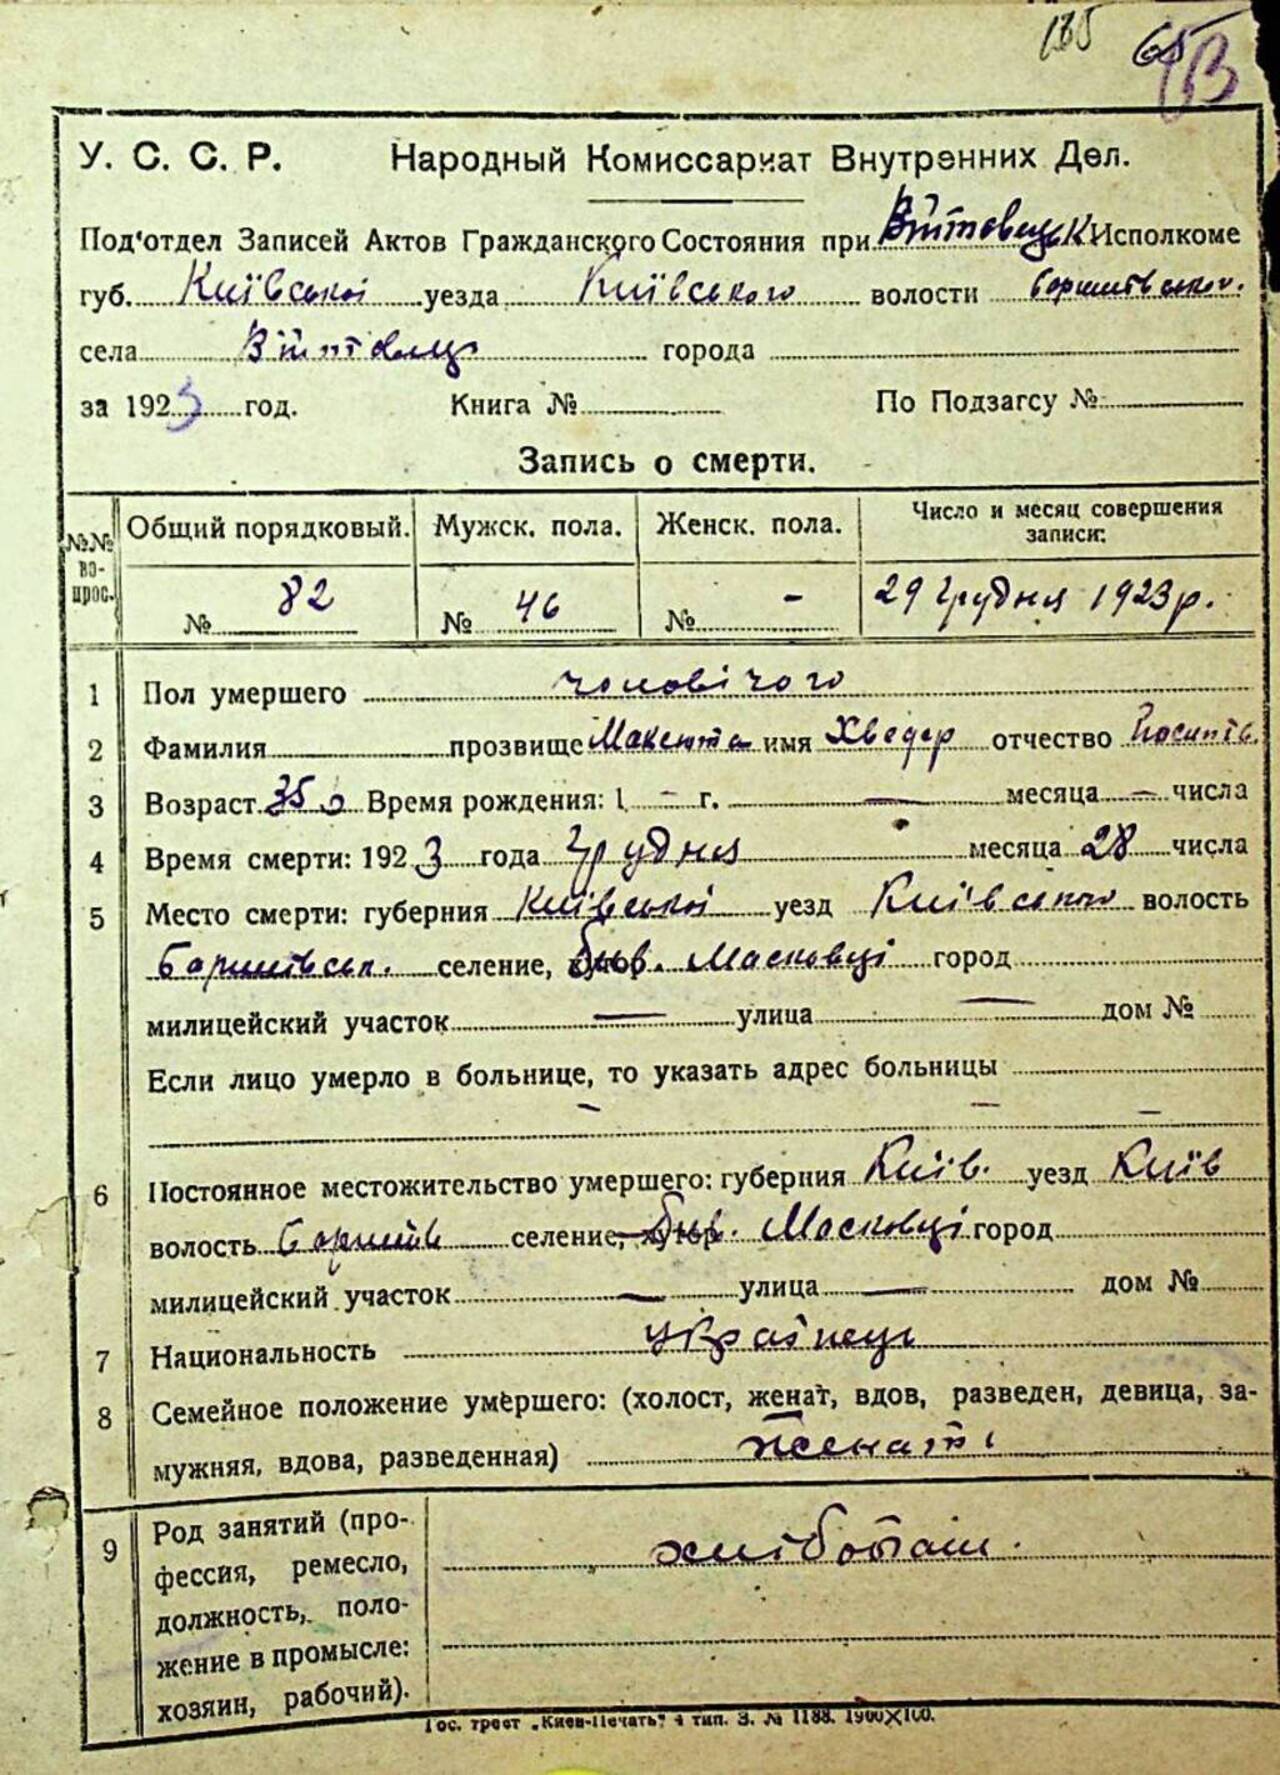 135 65
У. С. С. Р. Народный Комиссариат Внутренних Дел.
Под'отдел Записей Актов Гражданского Состояния при Исполкоме
губ. Київської уезда Київського волости
села Війтовці города
за 1923 год. Книга № По Подзагсу №
Запись о смерти.
№№ во- прос. Общий порядковый. Мужск. пола. Женск. пола. Число и месяц совершения записи:
№ 82 № 46 № - 29 грудня 1923 р.
1 Пол умершего чоловічого
2 Фамилия прозвище Максюта имя Хведер отчество
3 Возраст 35 Время рождения: 1 - г. — месяца — числа
4 Время смерти: 1923 года грудня месяца 28 числа
5 Место смерти: губерния Київської уезд Київського волость
селение, Масковці город
милицейский участок — улица — дом №
Если лицо умерло в больнице, то указать адрес больницы
— — —
6 Постоянное местожительство умершего: губерния Київ. уезд Київ
волость селение, хутор. Масковці город
милицейский участок — улица — дом №
7 Национальность українець
8 Семейное положение умершего: (холост, женат, вдов, разведен, девица, за-
мужняя, вдова, разведенная)
9 Род занятий (про-
фессия, ремесло,
должность, поло-
жение в промысле:
хозяин, рабочий).
Гос. трест „Киев-Печать“ 4 тип. З. № 1188. 1900X100.